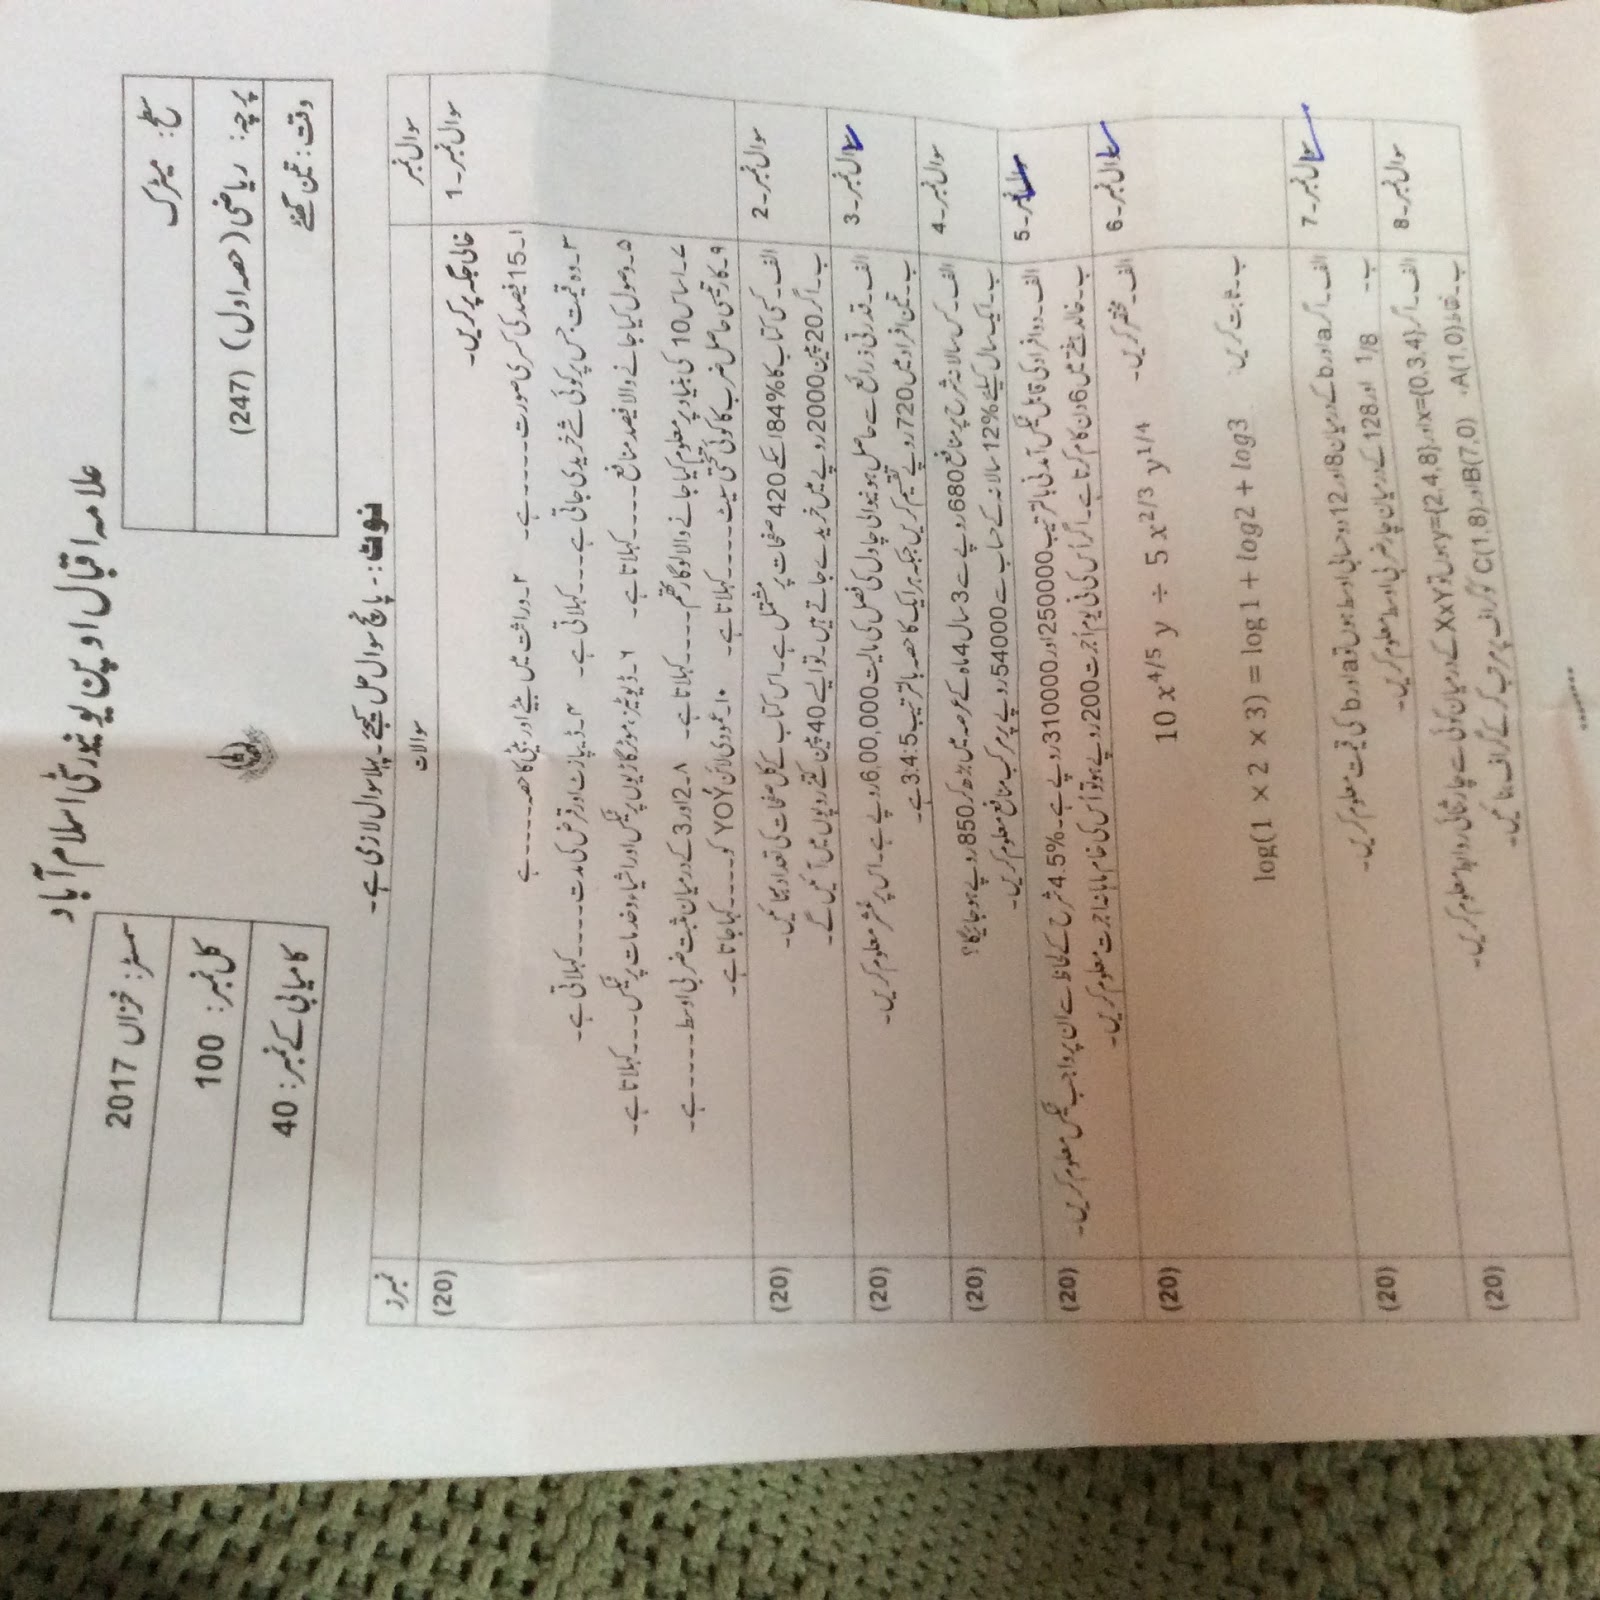 علامہ اقبال اوپن یونیورسٹی اسلام آباد
سطح: میٹرک
پرچہ: ریاضی (حصہ اول) (247)
وقت: تین گھنٹے
سمسٹر: خزاں 2017
کل نمبر: 100
کامیابی کے نمبر: 40
نوٹ:۔ پانچ سوال حل کیجئے۔ پہلا سوال لازمی ہے۔
سوال نمبر سوالات نمبرز
سوال نمبر-1 خالی جگہ پر کریں۔ (20)
۱۔ 15 فیصد کی کسری صورت ------ ہے۔ ۲۔ وراثت میں بیٹے اور بیٹی کا حصہ ------ ہے
۳۔ وہ قیمت جس پر کوئی شے خریدی جاتی ہے ---- کہلاتی ہے۔ ۴۔ ڈیپازٹ اور قرض کی مدت ---- کہلاتی ہے۔
۵۔ وصول کیا جانے والا فیصد منافع ---- کہلاتا ہے۔ ۶۔ ڈیوٹیز، موٹر گاڑیوں پر ٹیکس اور اشیاء و خدمات پر ٹیکس ---- کہلاتا ہے۔
۷۔ اساس 10 کی بنیاد پر معلوم کیا جانے والا لوگارتھم ---- کہلاتا ہے۔ ۸۔ 2 اور 3 کے درمیان مثبت ضربی اوسط ----- ہے۔
۹۔ کارتیسی حاصل ضرب کا کوئی تحتی سیٹ ---- کہلاتا ہے۔ ۱۰۔ عمودی لائن YOÝ کو ---- کہا جاتا ہے۔
سوال نمبر-2 الف۔ کسی کتاب کا 84% اسکے 420 صفحات پر مشتمل ہے۔ اس کتاب کے کل صفحات کی تعداد بتائیں۔ (20)
ب۔ اگر 20 پین 2000 روپے میں خریدے جاتے ہیں۔ تو ایسے 40 پین کتنے روپوں میں آئیں گے۔
سوال نمبر-3 الف۔ قدرتی ذرائع سے حاصل ہونیوالی چاول کی فصل کی مالیت 6,00,000 روپے ہے۔ اس پر عشر معلوم کریں۔ (20)
ب۔ تین افراد میں 720 روپے تقسیم کریں جبکہ ہر ایک کا حصہ بالترتیب 3:4:5 ہے۔
سوال نمبر-4 الف۔ کس سالانہ شرح پر منافع 680 روپے سے 3 سال 4 ماہ کے عرصہ میں بڑھ کر 850 روپے ہو جائیگا؟ (20)
ب۔ ایک سال کیلئے 12% سالانہ کے حساب سے 54000 روپے پر مرکب منافع معلوم کریں۔
سوال نمبر-5 الف۔ دو افراد کی قابل ٹیکس آمدنی بالترتیب 250000 اور 310000 روپے ہے۔ 4.5% شرح کے لحاظ سے ان پر واجب ٹیکس معلوم کریں۔ (20)
ب۔ خالد ہفتے میں 6 دن کام کرتا ہے۔ اگر اس کی فی یوم اُجرت 200 روپے ہو تو اُس کی خام ماہانہ اجرت معلوم کریں۔
سوال نمبر-6 الف۔ مختصر کریں۔ (20)
10 x^4/5 y ÷ 5 x^2/3 y^1/4
ب۔ ثابت کریں:
log(1 × 2 × 3) = log 1 + log2 + log3
سوال نمبر-7 الف۔ اگر a اور b کے درمیان 8 اور 12 دو حسابی اوسط ہوں تو a اور b کی قیمت معلوم کریں۔ (20)
ب۔ 1/8 اور 128 کے درمیان چار ضربی اوسط معلوم کریں۔
سوال نمبر-8 الف۔ اگر x={0,3,4} اور y={2,4,8} ہوں تو XxY کے درمیان کوئی سے چار ثنائی روابط معلوم کریں۔ (20)
ب۔ نقاط A(1,0)، B(7,0) اور C(1,8) کو گراف پر مرتب کر کے گراف بنائیں۔